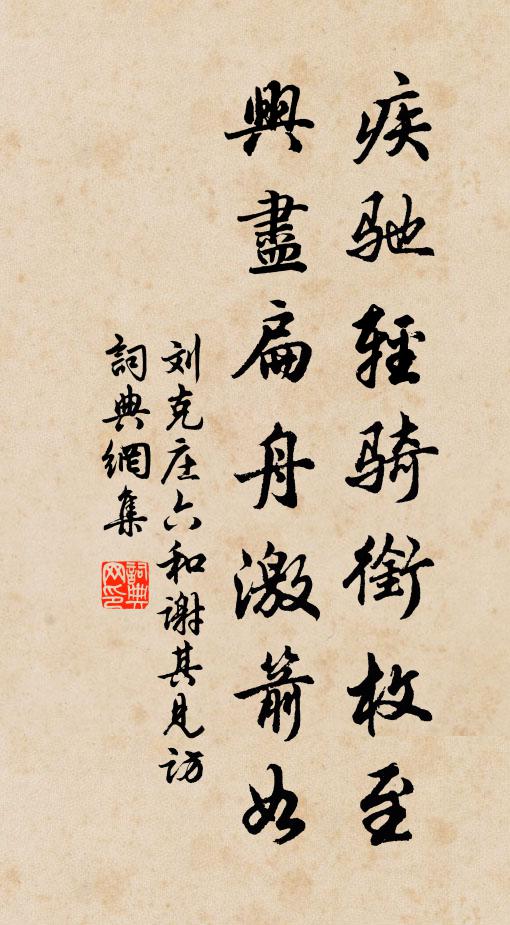 疾驰輕骑銜枚至
興盡扁舟激箭如
刘克庄六和谢其見访
詞典網集
詞典网印